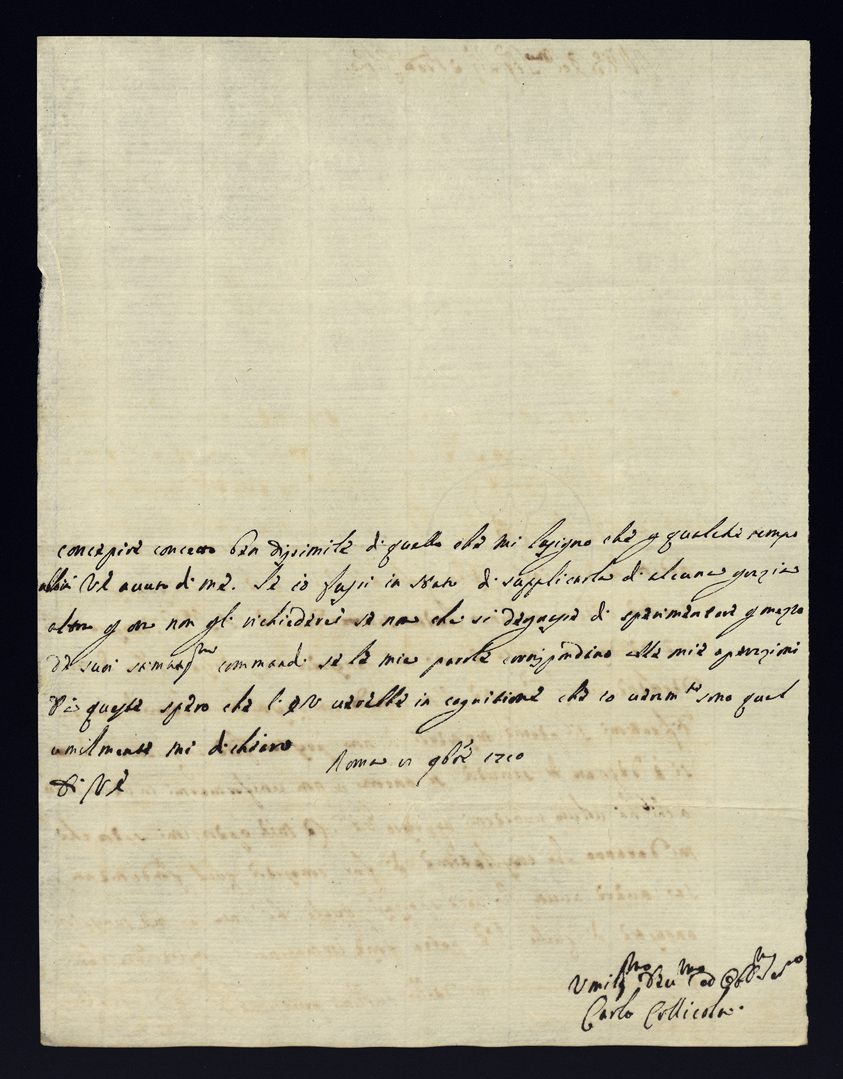 concepire concetto ben dissimile di quello che mi lusigno che p qualche tempo
abbia VE avuto di me. Se io fussi in stato di supplicarla di alcuna grazia
altra p ora non gli richiederei se non che si degnasse di sperimentare p mezzo
de suoi stimatis.mi commandi se le mie parole corrispondino alle mie operazioni
Da queste spero che l'EV verrebbe in cognitione che io veram.te sono qual
umilmente mi dichiaro
Di VE
Roma 9bre 1710
Umilis.mo Dev.mo ed Obb.mo Se.re
Carlo Collicola.